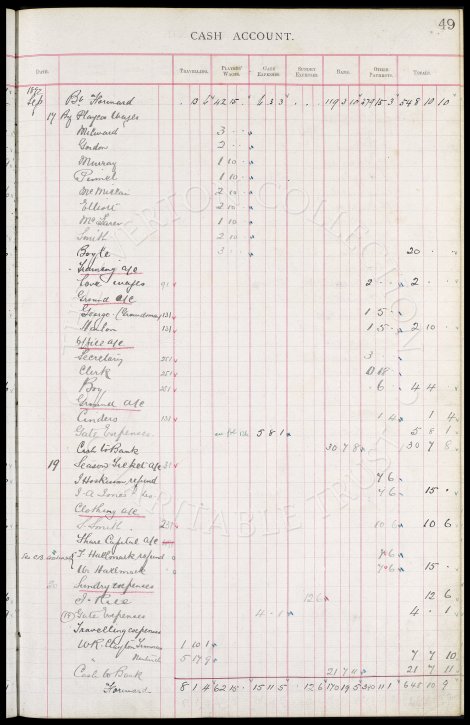 49
CASH ACCOUNT.
DATE. TRAVELLING. PLAYERS' WAGES. GATE EXPENSES. SUNDRY EXPENSES. BANK. OTHER PAYMENTS. TOTALS.
Sep Bt Forward 13 6 42 15 6 3 3 119 3 10 379 15 3 548 10 10
17 By Players Wages
Milward 3
Gordon 2
Murray 1 10
Pinnel 1 10
McMillan 2 10
Elliott 2 10
McLaren 1 10
Smith 2 10
Boyle 3 20
Training a/c
Love wages 91 2 2
Ground a/c
George (Groundsman) 131 1 5
131 1 5 2 10
Office a/c
Secretary 251 3
Clerk 251 18
Boy 251 6 4 4
Ground a/c
Cinders 131 1 4 1 4
Gate Expenses 5 8 1 5 8 1
Cash to Bank 30 7 8 30 7 8
19 Season Ticket a/c
J Hoskison refund 7 6
J A Jones do 7 6 15
Clothing a/c
S. Smith 10 6 10 6
Share Capital a/c
F Hallmark refund 7 6
W. Hallmark 7 6 15
20 Sundry expenses
J. Rice 12 6 12 6
(19) Gate Expenses 4 1 4 1
Travelling expenses
W.R. Clayton 1 10 1
5 17 9 7 7 10
Cash to Bank 21 7 11 21 7 11
Forward 8 1 4 62 15 15 11 5 12 6 170 19 5 645 10 9
EVERTON COLLECTION
CHARITABLE TRUST